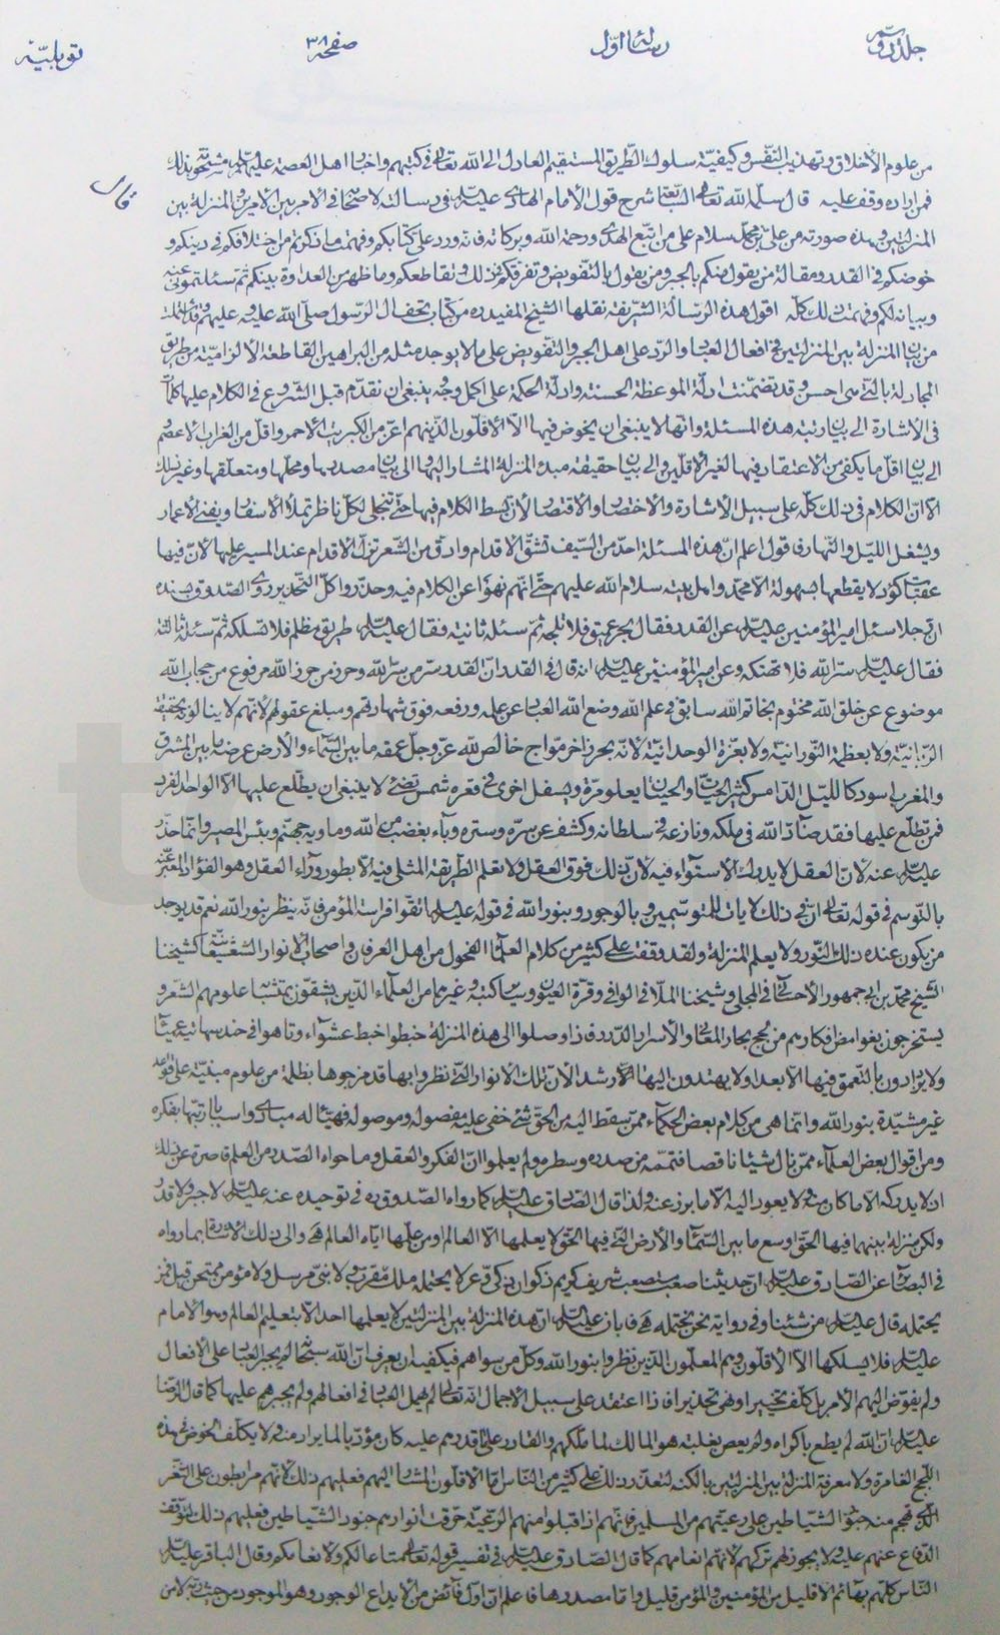 جلد دوم
رسالة اوّل
صفحه ٣٨
توبليّة
من علوم الأخلاق وتهذيب النّفس وكيفيّة سلوك الطّريق المستقيم العادل الى الله تعالى فى كتبهم واخبار اهل العصمة عليهم السلام مشحونة بذلك
فمن اراده وقف عليه قال سلّمه الله تعالى شرح قول الأمام الهادى عليه السلام فى رسالته لاصحابه فى الأمر بين الأمرين والمنزلة بين
قال
المنزلتين وهذه صورته من على بن محمّد سلام على من اتّبع الهدى ورحمة الله وبركاته فانه ورد علىّ كتابكم وفهمت ما ذكرتم من اختلافكم فى دينكم و
خوضكم فى القدر ومقالة من يقول منكم بالجبر ومن يقول بالتفويض وتفرقكم فى ذلك وتقاطعكم وما ظهر من العداوة بينكم ثم سئلتمونى عنه
وبيانه لكم وفهمت ذلك كلّه اقول هذه الرّسالة الشّريفة نقلها الشيخ المفيد ره من كتاب تحف ال الرّسول صلّى الله عليه وعليهم
من بيان المنزلة بين المنزلتين فى افعال العباد والرّد على اهل الجبر والتفويض على ما لا يوجد مثله من البراهين القاطعة الالزاميّة من طريق
المجادلة بالّتى هى احسن وقد تضمّنت ادلّة الموعظة الحسنة وادلّة الحكمة على اكمل وجه ينبغى ان نقدّم قبل الشّروع فى الكلام عليها كلاما
فى الاشارة الى بيان رتبة هذه المسئلة وانّها لا ينبغى ان يخوض فيها الّا الأقلّون الّذين هم اعزّ من الكبريت الأحمر واقلّ من الغراب الاعصم
الى بيان اقلّ ما يكفى من الاعتقاد فيها لغير الأقلّين والى بيان حقيقة مبدء المنزلة المشار اليها والى بيان مصدرها ومحلّها ومتعلّقها وغير ذلك
الّا انّ الكلام فى ذلك كلّه على سبيل الأشارة والاختصار والاقتصار لأنّ بسط الكلام فيها حتّى تنجلى لكلّ ناظر تملأ الاسفار ويفنى الأعمار
ويشغل اللّيل والنّهار فاقول اعلم انّ هذه المسئلة احدّ من السّيف تشقّ الاقدام وادقّ من الشّعر تزلّ الاقدام عند المسير عليها لأنّ فيها
عقبات كؤد لا يقطعها بسهولة الّا محمّد واهل بيته سلام الله عليهم حتّى انّهم نهوا عن الكلام فيه وحذّروا كلّ التّحذير روى الصّدوق بسنده
انّ رجلا سئل امير المؤمنين عليه السلام عن القدر فقال بحر عميق فلا تلجه ثمّ سئله ثانية فقال عليه السلام طريق مظلم فلا تسلكه ثمّ سئله ثالثة
فقال عليه السلام سرّ الله فلا تهتكه وعن امير المؤمنين عليه السلام انه قال فى القدر انّ القدر سرّ من سرّ الله وحرز من حرز الله مرفوع من حجاب الله
موضوع عن خلق الله مختوم بخاتم الله سابق فى علم الله وضع الله العباد عن علمه ورفعه فوق شهاداتهم ومبلغ عقولهم لأنّهم لا ينالونه بحقيقة
الرّبانيّة ولا بعظمة النّورانيّة ولا بعزّة الوحدانيّة لأنّه بحر زاخر موّاج خالص لله عزّ وجلّ عمقه ما بين السّماء والأرض عرضه ما بين المشرق
والمغرب اسود كاللّيل الدّامس كثير الحيّات والحيتان يعلو مرّة ويسفل اخرى فى قعره شمس تضئ لا ينبغى ان يطّلع عليها الّا الواحد الفرد
فمن تطلّع عليها فقد ضآدّ الله فى ملكه ونازعه فى سلطانه وكشف عن سرّه وستره وباء بغضب من الله وماويه جهنّم وبئس المصير وانّما حذّر
عليه السلام عنه لأنّ العقل لا يدرك الاستواء فيه لأنّ ذلك فوق العقل ولا تعلم الطّريقة المثلى فيه الّا بطور وراء العقل وهو الفؤاد المعبّر عنه
بالتّوسم فى قوله تعالى انّ فى ذلك لايات للمتوسّمين وبالوجود وبنور الله فى قوله عليه السلام اتّقوا فراسة المؤمن فانّه ينظر بنور الله نعم قد يوجد
من يكون عنده ذلك النّور ولا يعلم المنزلة ولقد وقفت على كثير من كلام العلماء الفحول من اهل العرفان واصحاب الانوار الشعشعانيّة كشيخنا
الشيخ محمّد بن ابى جمهور الأحسائى فى المجلى وشيخنا الملّا فى الوافى وقرّة العيون وساير كتبه وغيرهما من العلماء الّذين يشقّون بمثقب علومهم الشّعر و
يستخرجون بغوامض افكارهم من لجج بحار المعانى والأسرار الدّرر فاذا وصلوا الى هذه المنزلة خبطوا خبط عشواء وتاهوا فى حندسها تيه عمياء
ولا يزدادون بالتّعمق فيها الّا بعدا ولا يهتدون اليها رشدا لأنّ تلك الأنوار الّتى نظروا بها قد مزجوها بظلمة من علوم مبنيّة على قواعد
غير مشيّدة بنور الله وانّما هى من كلام بعض الحكماء ممّن سقط اليه من الحقّ شئ خفى عليه مفصوله وموصوله فهيّأ له مبادى واسبابا رتّبها بفكره
ومن اقوال بعض العلماء ممّن نال شيئا ناقصا فتمّمه من صدره وسطره ولم يعلموا انّ الفكر والعقل وما حواه الصّدر من العلم قاصرة عن ذلك
ان لا يدركه الّا ما كان منه ولا يعود اليه الّا ما برز عنه ولذا قال الصّادق عليه السلام كما رواه الصّدوق ره فى توحيده عنه عليه السلام لا جبر ولا قدر
ولكن منزلة بينهما فيها الحقّ اوسع ما بين السّماء والأرض الّتى فيها الحقّ لا يعلمها الّا العالم او من علّمها ايّاه العالم هى والى ذلك الاشارة بما رواه
فى البصائر عن الصّادق عليه السلام انّ حديثنا صعب مستصعب شريف كريم ذكوان ذكىّ وعر لا يحتمله ملك مقرّب ولا نبىّ مرسل ولا مؤمن ممتحن قيل فمن
يحتمله قال عليه السلام من شئنا وفى رواية نحن نحتمله هى فابان عليه السلام انّ هذه المنزلة بين المنزلتين لا يعلمها احد الّا بتعليم العالم وهو الامام
عليه السلام فلا يسلكها الّا الأقلّون وهم المعلّمون الّذين نظروا بنور الله وكلّ من سواهم فيكفيه ان يعرف انّ الله سبحانه لم يجبر العباد على الأفعال
ولم يفوّض اليهم الأمر بل كلّف تخييرا ونهى تحذيرا فاذا اعتقد على سبيل الأجمال انّه تعالى لم يهمل العباد فى افعالهم ولم يجبرهم عليها كما قال الرّضا
عليه السلام انّ الله لم يطع باكراه ولم يعص بغلبة هو المالك لما ملّكهم والقادر على ما اقدرهم عليه كان مؤدّيا لما يراد منه ولا يكلّف الخوض فى هذه
اللّجج الغامرة ولا معرفة المنزلة بين المنزلتين بالكنه لتعذّر ذلك على كثير من النّاس امّا الأقلّون المشار اليهم فعليهم ذلك لأنّهم مرابطون على الثّغر
الّذى تهجم منه جنود الشّياطين على رعيّتهم من المسلمين فانّهم اذا قبلوا منهم الرّعيّة حرقت انوارهم جنود الشّياطين فعليهم ذلك لتوقّف
الدّفاع عنهم عليه ولا يجوز لهم تركهم لأنّهم انعامهم كما قال الصّادق عليه السلام فى تفسير قوله تعالى متاعا لكم ولأنعامكم وقال الباقر عليه السلام
النّاس كلّهم بهائم الّا قليل من المؤمنين والمؤمن قليل وامّا مصدرها فاعلم انّ اوّل فائض من الأبداع الوجود وهو الموجود من حيث ربّه لا من